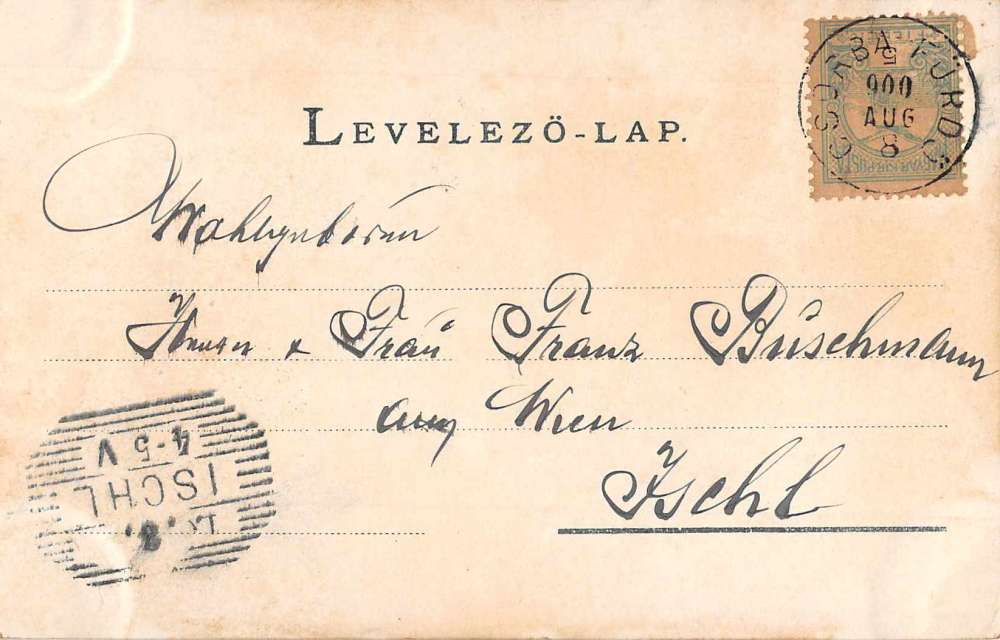 LEVELEZŐ-LAP.
CSORBA FÜRDŐ
5
900
AUG
8
Wohlgeboren
Herrn & Frau Franz Buschmann
aus Wien
Ischl
ISCHL
4-5 V